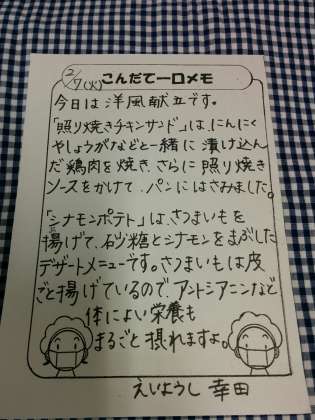 2/7(火)
こんだて一口メモ
今日は洋風献立です。
「照り焼きチキンサンド」は、にんにく
やしょうがなどと一緒に漬け込ん
だ鶏肉を焼き、さらに照り焼き
ソースをかけて、パンにはさみました。
「シナモンポテト」は、さつまいもを
揚げて、砂糖とシナモンをまぶした
デザートメニューです。さつまいもは皮
ごと揚げているので、アントシアニンなど
体によい栄養も
まるごと摂れますよ。
えいようし 幸田